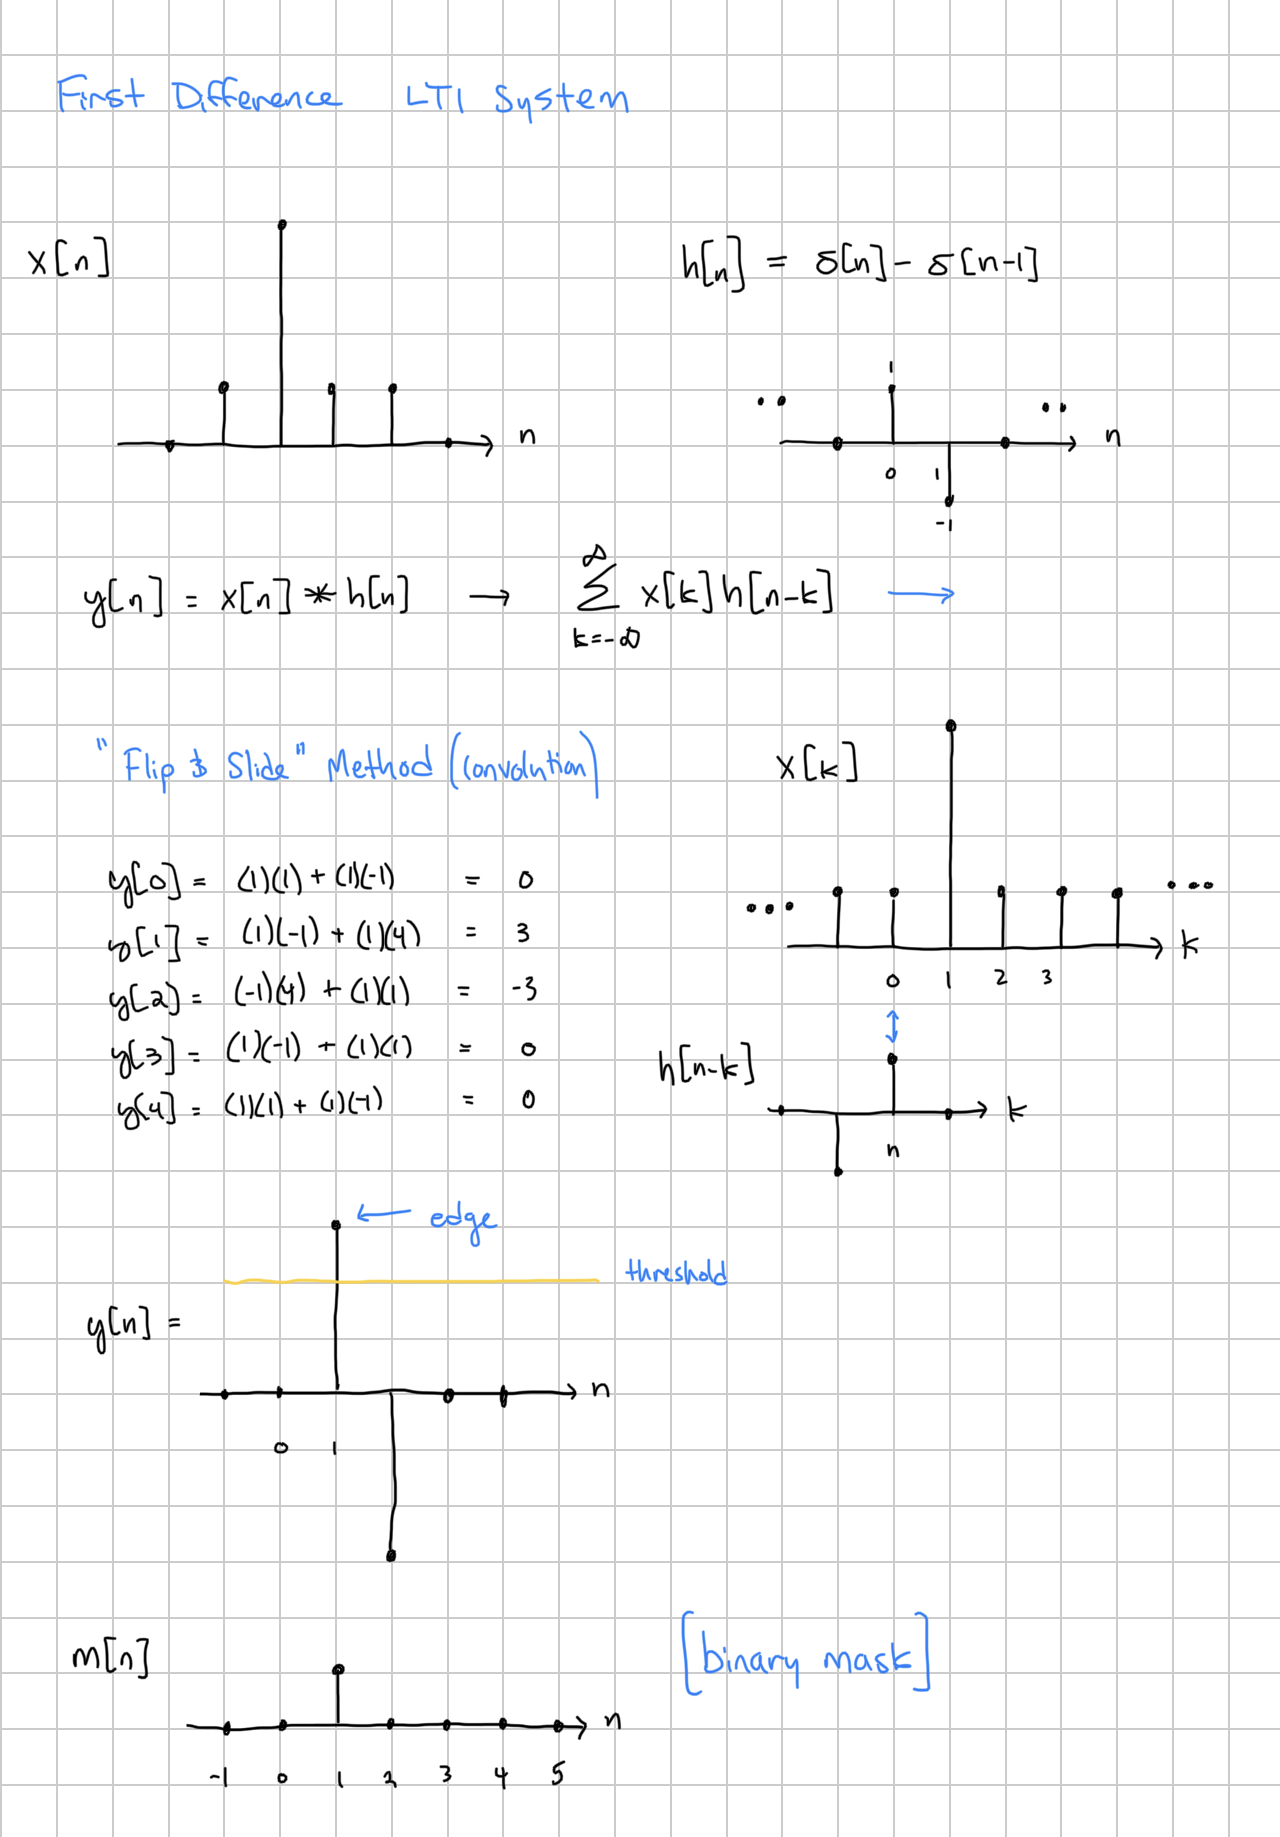 First Difference LTI System
x[n]
n
h[n] = δ[n] - δ[n-1]
1
n
0 1
-1
y[n] = x[n] * h[n] → ∞ Σ k=-∞ x[k] h[n-k] →
"Flip & Slide" Method (convolution)
x[k]
y[0] = (1)(1) + (1)(-1) = 0
y[1] = (1)(-1) + (1)(4) = 3
y[2] = (-1)(4) + (1)(1) = -3
y[3] = (1)(-1) + (1)(1) = 0
y[4] = (1)(1) + (1)(-1) = 0
... ...
k
0 1 2 3
h[n-k]
k
n
← edge
threshold
y[n] =
n
0 1
m[n]
[binary mask]
n
-1 0 1 2 3 4 5